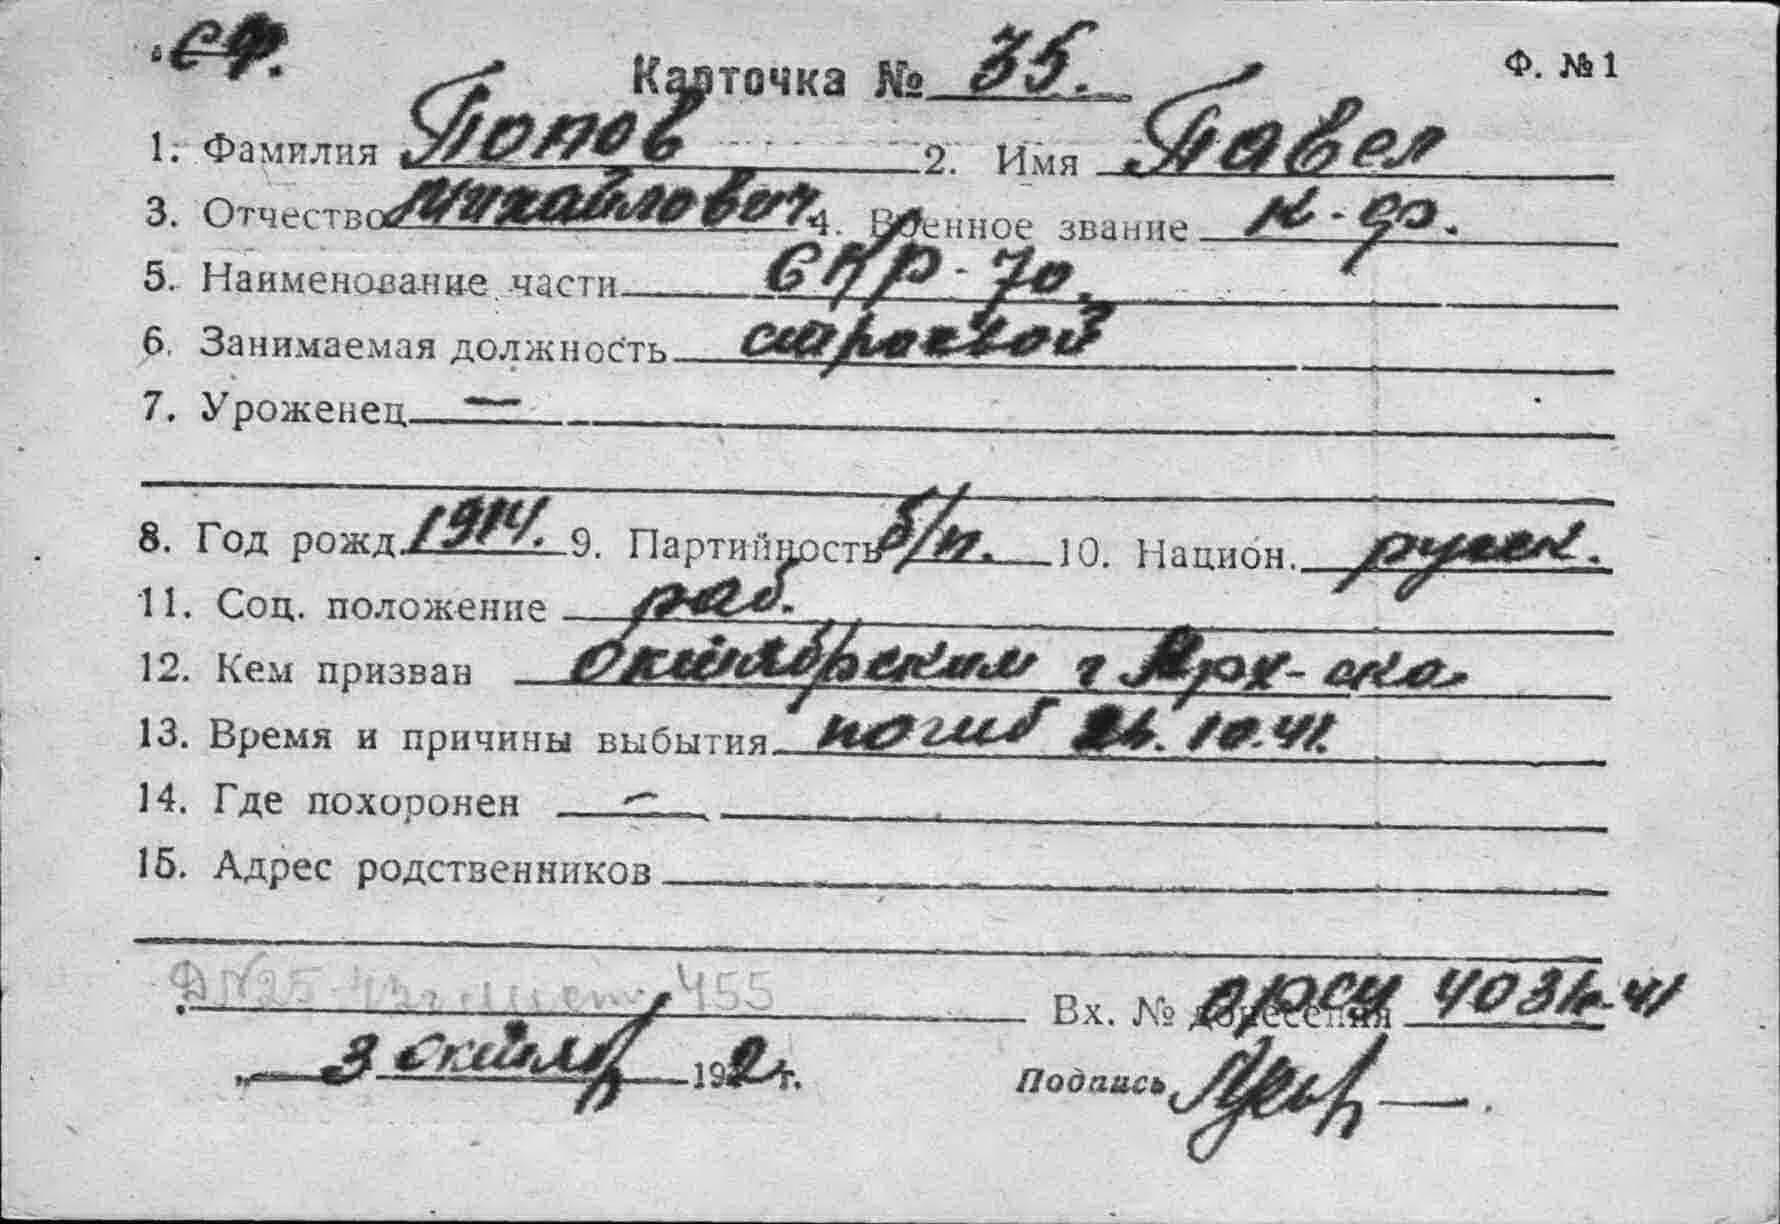 СФ.
Карточка № 35. Ф. №1
1. Фамилия Попов 2. Имя Павел
3. Отчество Михайлович 4. Военное звание к-фл.
5. Наименование части СКР-70.
6. Занимаемая должность строевой
7. Уроженец —
8. Год рожд. 1914. 9. Партийность б/п. 10. Национ. русск.
11. Соц. положение раб.
12. Кем призван Октябрьским г Арх-ска
13. Время и причины выбытия погиб 10.41.
14. Где похоронен —
15. Адрес родственников
Д№25 455
Вх. № донесения ОРСУ 4031с-41
„ 3 октябр 192г.
Подпись